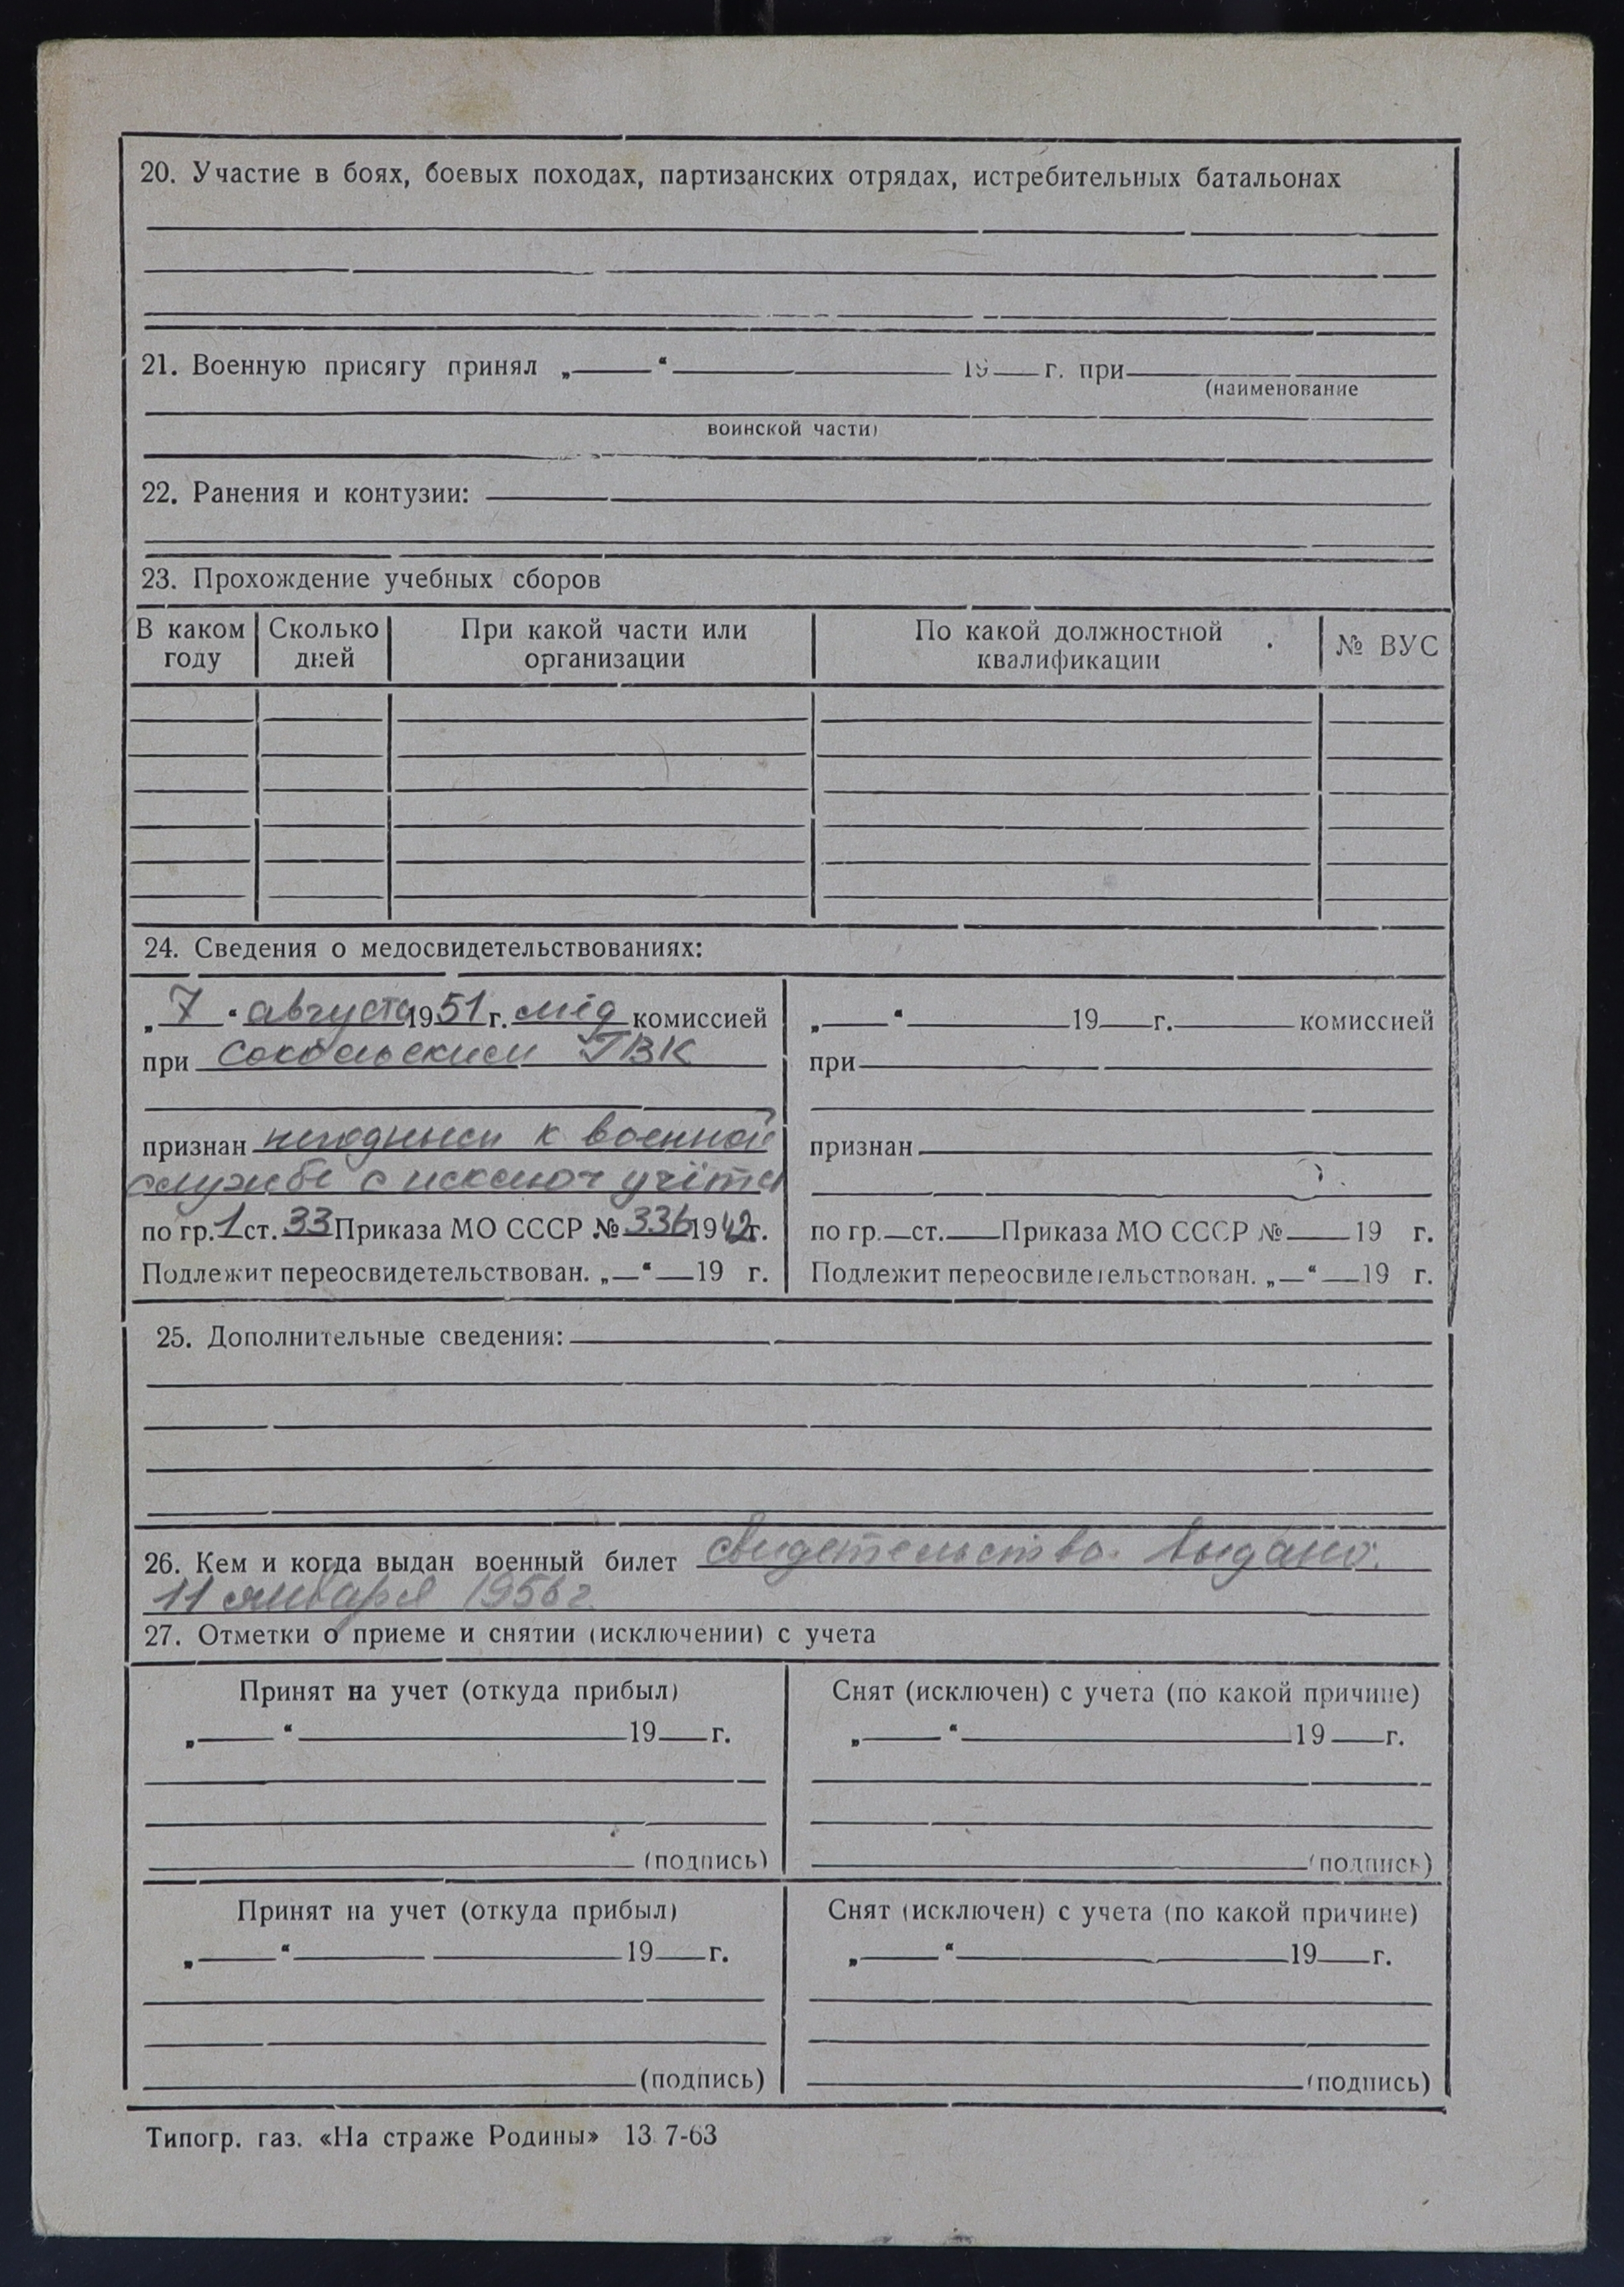 20. Участие в боях, боевых походах, партизанских отрядах, истребительных батальонах
21. Военную присягу принял „ “ 19 г. при
(наименование
воинской части)
22. Ранения и контузии:
23. Прохождение учебных сборов
В каком году Сколько дней При какой части или организации По какой должностной квалификации № ВУС
24. Сведения о медосвидетельствованиях:
„7“ августа 1951 г. мед комиссией
при Сокольским ГВК
признан негодным к военной
службе с исключ учёта
по гр. 1 ст. 33 Приказа МО СССР № 336 1942 г.
Подлежит переосвидетельствован. „ “ 19 г.
„ “ 19 г. комиссией
при
признан
по гр. ст. Приказа МО СССР № 19 г.
Подлежит переосвидетельствован. „ “ 19 г.
25. Дополнительные сведения:
26. Кем и когда выдан военный билет свидетельство выдано.
11 января 1956 г.
27. Отметки о приеме и снятии (исключении) с учета
Принят на учет (откуда прибыл)
„ “ 19 г.
(подпись)
Снят (исключен) с учета (по какой причине)
„ “ 19 г.
(подпись)
Принят на учет (откуда прибыл)
„ “ 19 г.
(подпись)
Снят (исключен) с учета (по какой причине)
„ “ 19 г.
(подпись)
Типогр. газ. «На страже Родины» 13 7-63